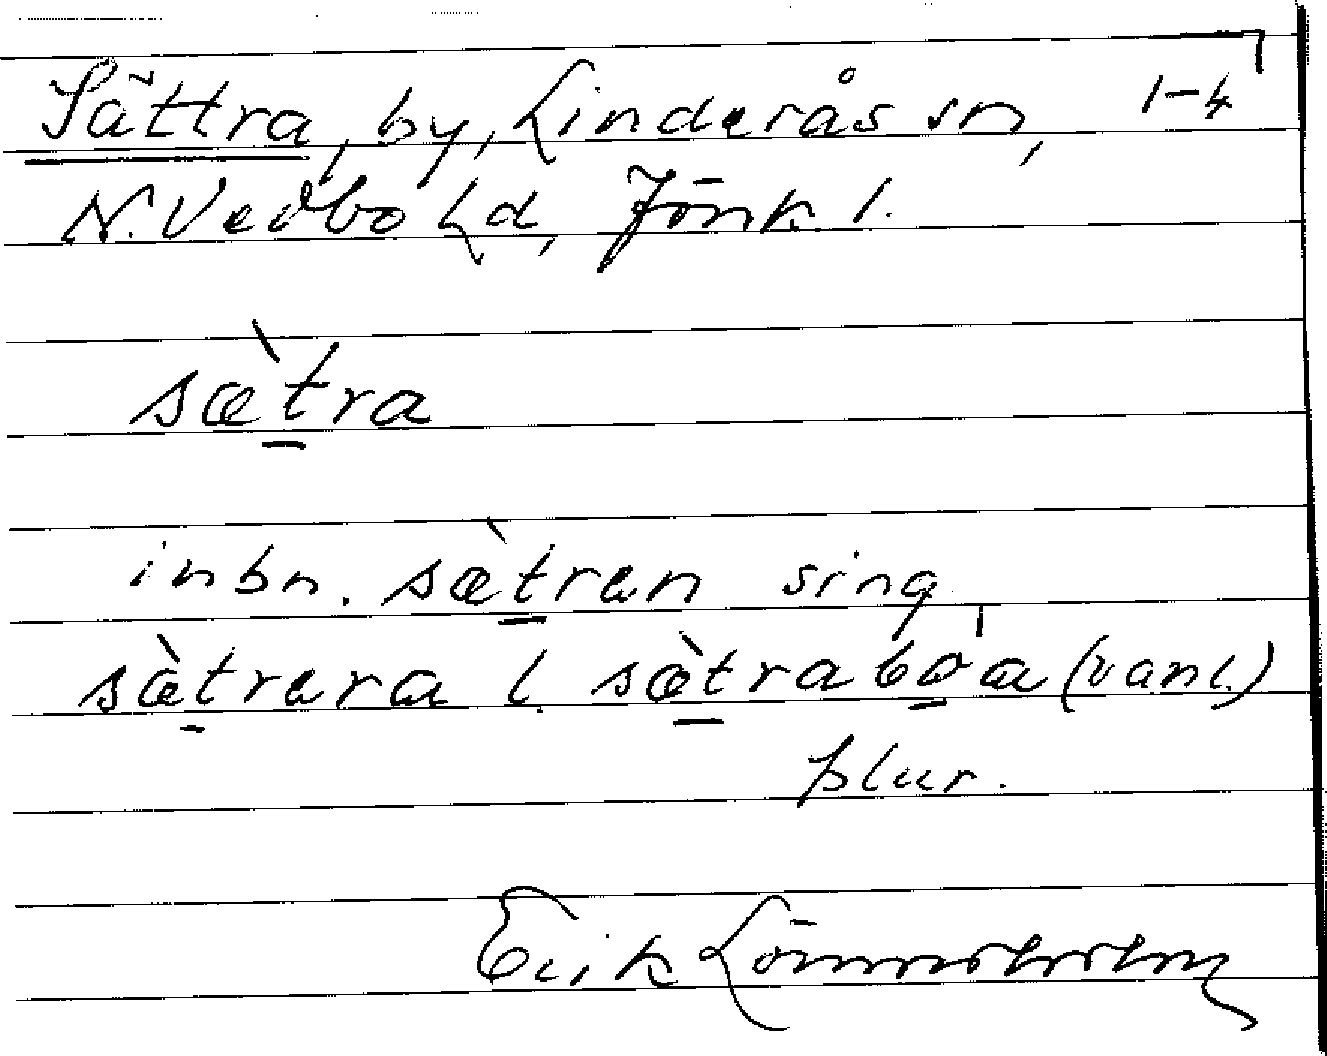 Sättra, by, Linderås sn, 1-4
N. Vedbo hd, Jönk l.
sæ̀tra
inbn. sæ̀tren sing
sæ̀trera l. sæ̀traböa (vanl.)
plur.
Erik Lönnerholm